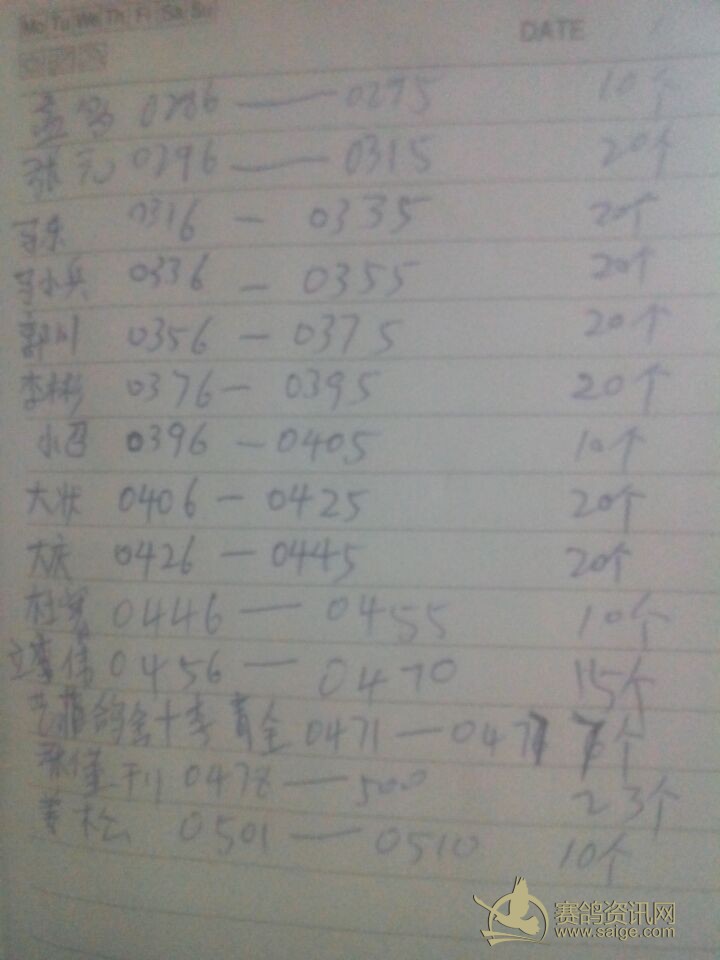 Mo Tu We Th Fr Sa Su
DATE
0286 — 0295 10个
张元 0296 — 0315 20个
0316 — 0335 20个
小兵 0336 — 0355 20个
郭川 0356 — 0375 20个
李彬 0376 — 0395 20个
小召 0396 — 0405 10个
大状 0406 — 0425 20个
大庆 0426 — 0445 20个
0446 — 0455 10个
0456 — 0470 15个
鸽舍+李 0471 — 0477 7个
0478 — 500 23个
姜松 0501 — 0510 10个
赛鸽资讯网
www.saige.com